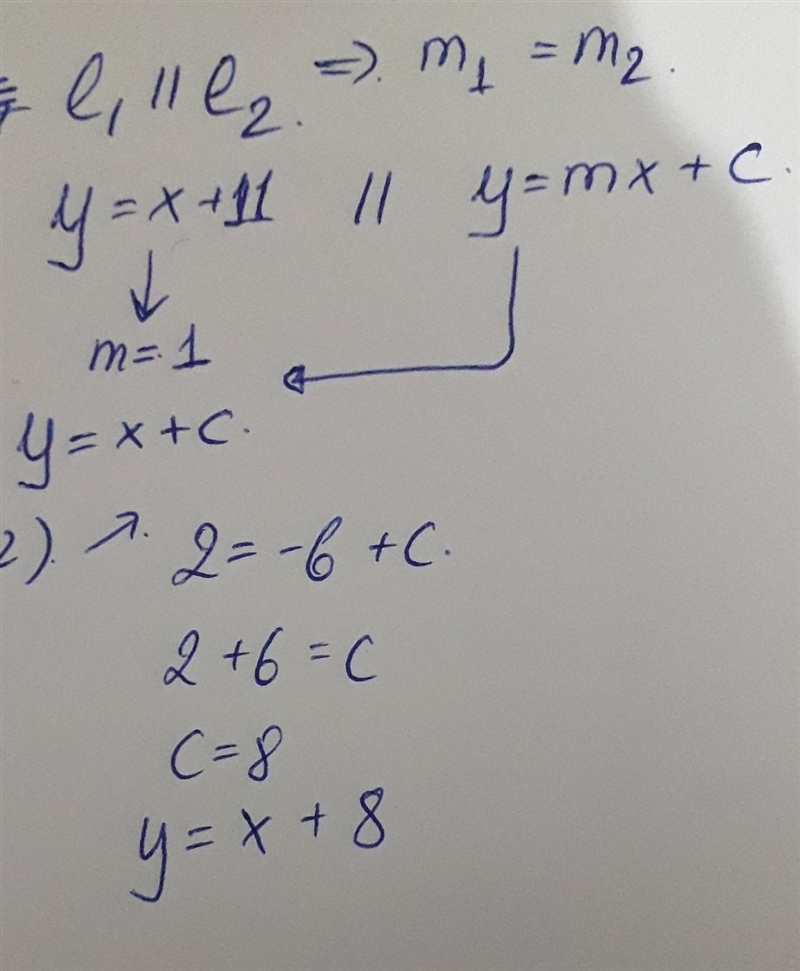 l₁ // l₂. ⇒ m₁ = m₂.
y = x + 11 // y = mx + c.
↓
m = 1
y = x + c.
2). ↗. 2 = -6 + c.
2 + 6 = c
c = 8
y = x + 8